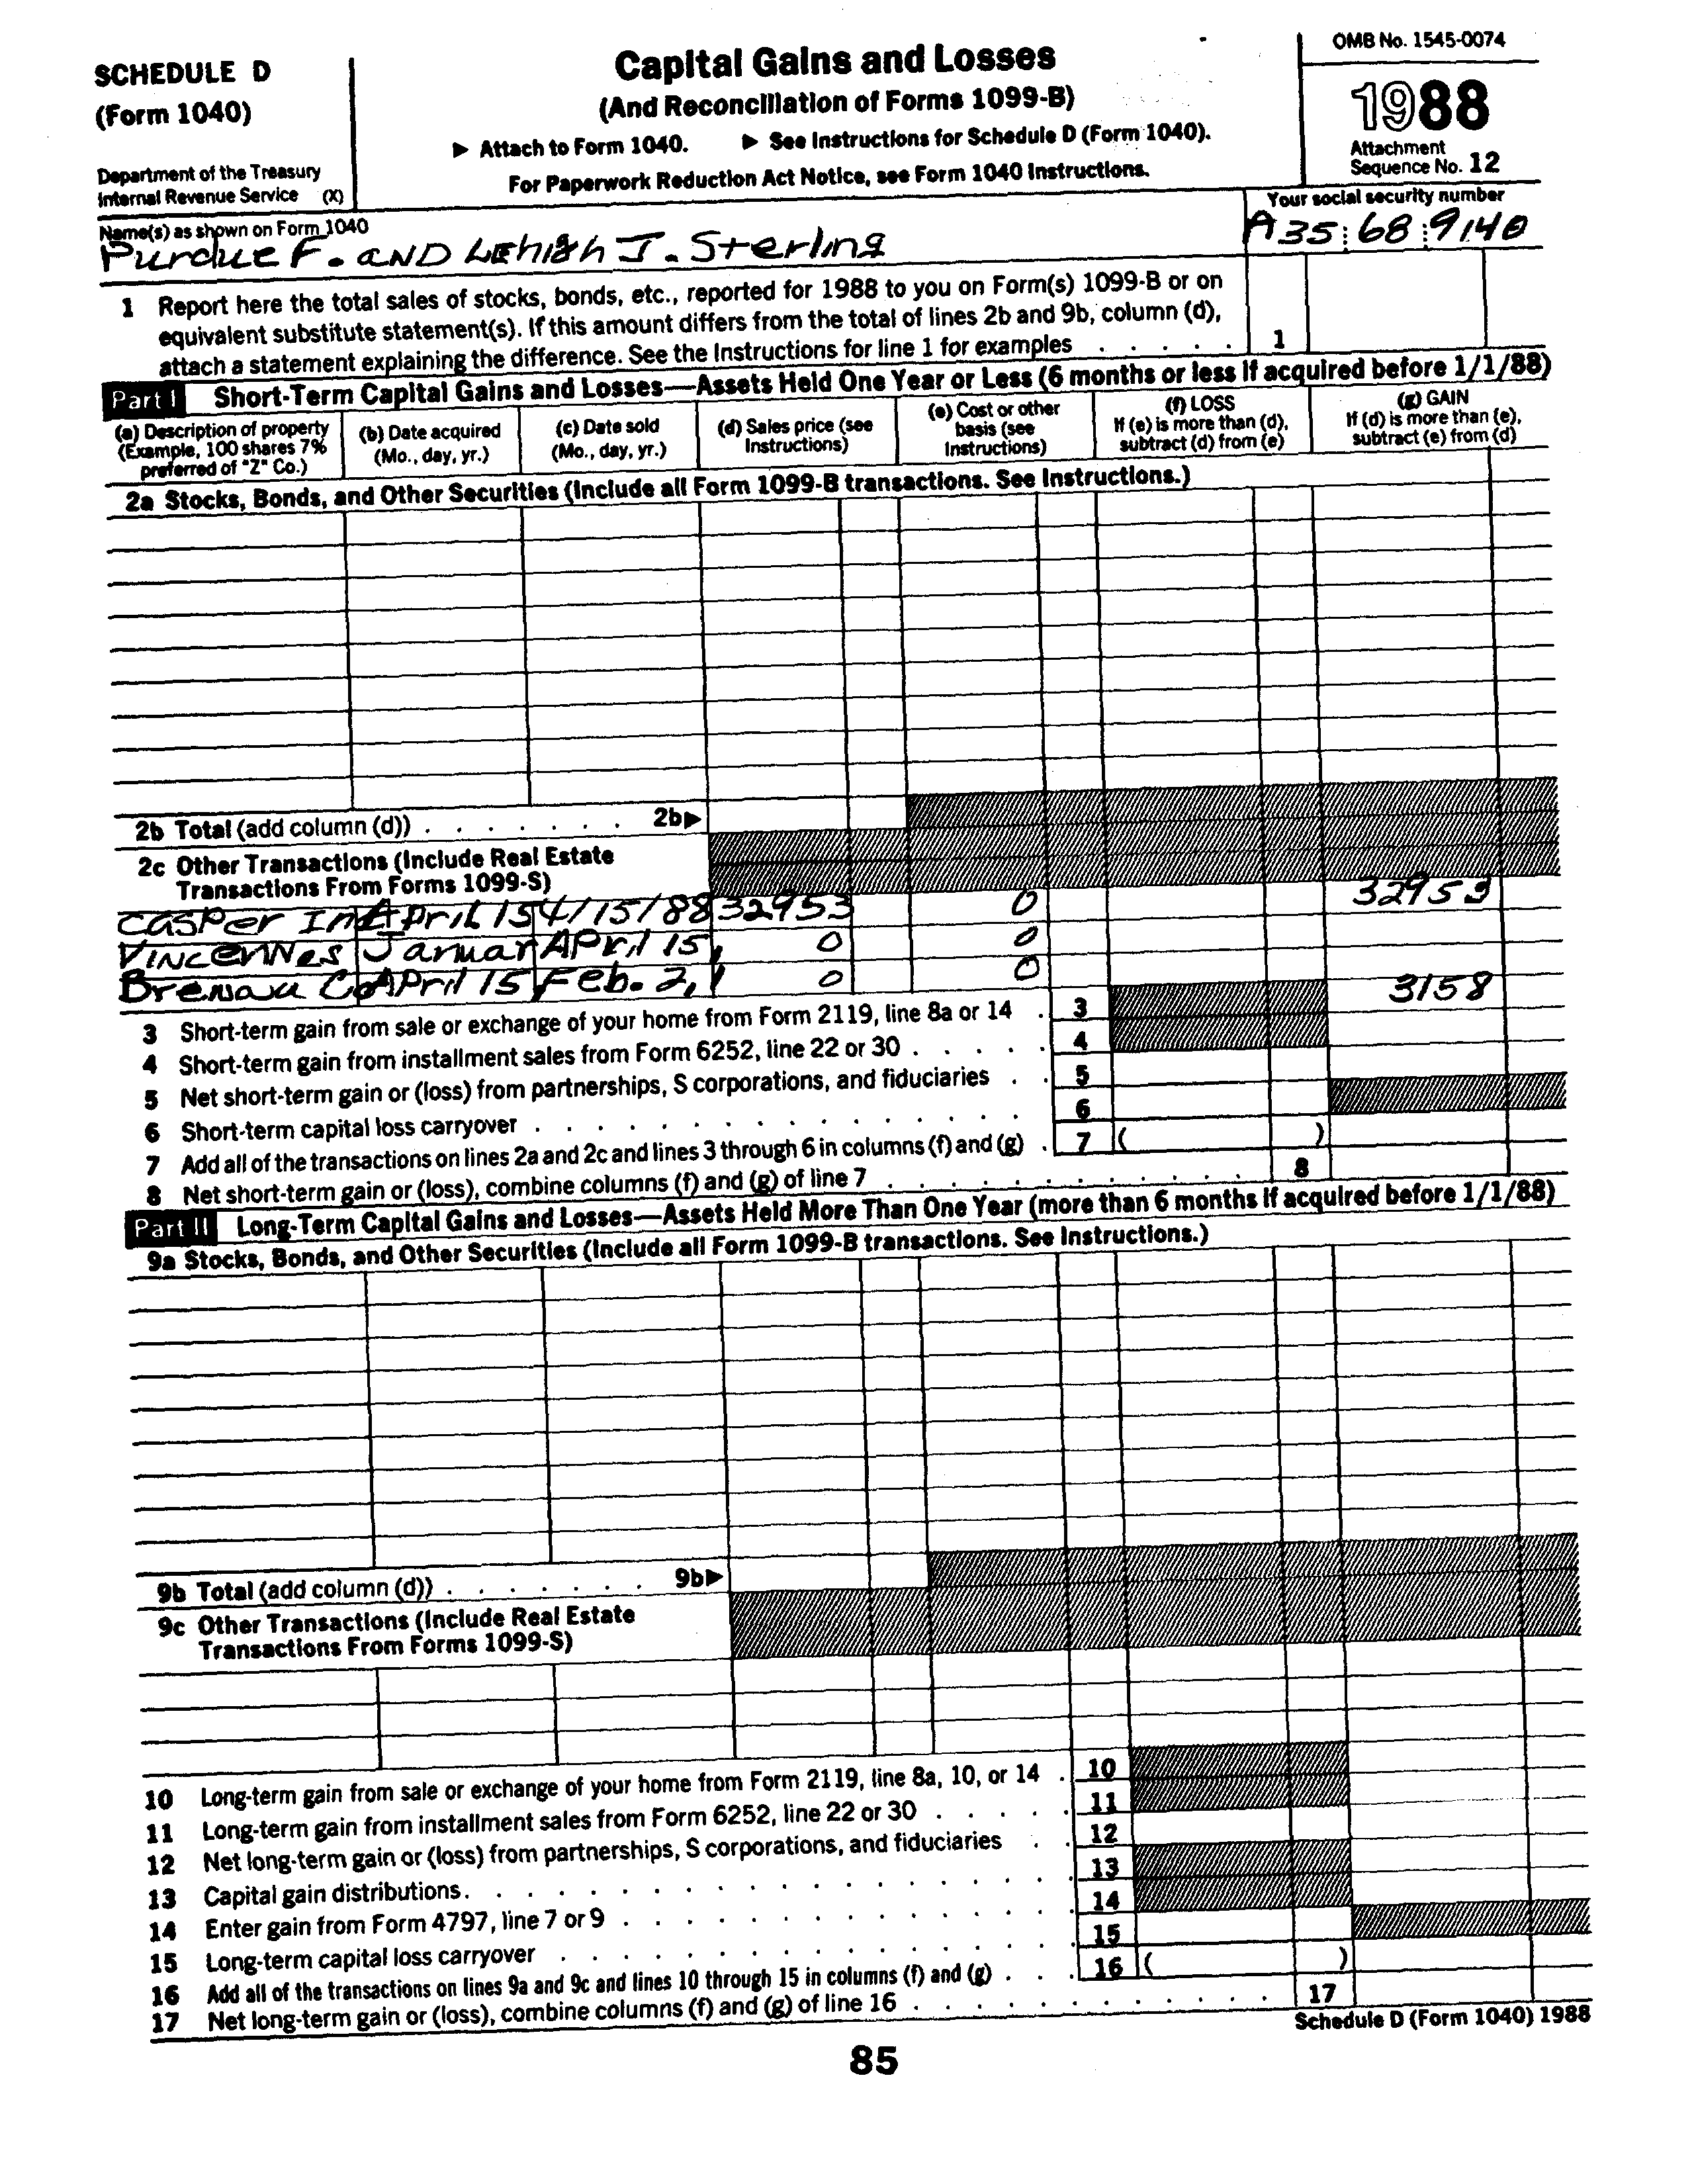 SCHEDULE D
(Form 1040)
Department of the Treasury
Internal Revenue Service (X)
Capital Gains and Losses
(And Reconciliation of Forms 1099-B)
▶ Attach to Form 1040. ▶ See Instructions for Schedule D (Form 1040).
For Paperwork Reduction Act Notice, see Form 1040 Instructions.
OMB No. 1545-0074
1988
Attachment
Sequence No. 12
Name(s) as shown on Form 1040
Purdue F. AND Lehigh J. Sterling
Your social security number
A35 68 9140
1 Report here the total sales of stocks, bonds, etc., reported for 1988 to you on Form(s) 1099-B or on
equivalent substitute statement(s). If this amount differs from the total of lines 2b and 9b, column (d),
attach a statement explaining the difference. See the Instructions for line 1 for examples . . . . . 1
Part I Short-Term Capital Gains and Losses—Assets Held One Year or Less (6 months or less if acquired before 1/1/88)
(a) Description of property
(Example, 100 shares 7%
preferred of "Z" Co.)
(b) Date acquired
(Mo., day, yr.)
(c) Date sold
(Mo., day, yr.)
(d) Sales price (see
Instructions)
(e) Cost or other
basis (see
Instructions)
(f) LOSS
If (e) is more than (d),
subtract (d) from (e)
(g) GAIN
If (d) is more than (e),
subtract (e) from (d)
2a Stocks, Bonds, and Other Securities (Include all Form 1099-B transactions. See Instructions.)
2b Total (add column (d)) . . . . . . . 2b▶
2c Other Transactions (Include Real Estate
Transactions From Forms 1099-S)
Casper In April 15 4/15/88 32953 0 32953
Vincennes Januar April 15, 0 0
Brenau Co April 15 Feb. 2, 1 0 0 3158
3 Short-term gain from sale or exchange of your home from Form 2119, line 8a or 14 . 3
4 Short-term gain from installment sales from Form 6252, line 22 or 30 . . . . . 4
5 Net short-term gain or (loss) from partnerships, S corporations, and fiduciaries . . 5
6 Short-term capital loss carryover . . . . . . . . . . . . . . 6
7 Add all of the transactions on lines 2a and 2c and lines 3 through 6 in columns (f) and (g) . 7 ( )
8 Net short-term gain or (loss), combine columns (f) and (g) of line 7 . . . . . . . . . . . 8
Part II Long-Term Capital Gains and Losses—Assets Held More Than One Year (more than 6 months if acquired before 1/1/88)
9a Stocks, Bonds, and Other Securities (Include all Form 1099-B transactions. See Instructions.)
9b Total (add column (d)) . . . . . . . 9b▶
9c Other Transactions (Include Real Estate
Transactions From Forms 1099-S)
10 Long-term gain from sale or exchange of your home from Form 2119, line 8a, 10, or 14 . 10
11 Long-term gain from installment sales from Form 6252, line 22 or 30 . . . . . 11
12 Net long-term gain or (loss) from partnerships, S corporations, and fiduciaries . . 12
13 Capital gain distributions . . . . . . . . . . . . . . . . . 13
14 Enter gain from Form 4797, line 7 or 9 . . . . . . . . . . . . . 14
15 Long-term capital loss carryover . . . . . . . . . . . . . . 15
16 Add all of the transactions on lines 9a and 9c and lines 10 through 15 in columns (f) and (g) . . . 16 ( )
17 Net long-term gain or (loss), combine columns (f) and (g) of line 16 . . . . . . . . . . . 17
Schedule D (Form 1040) 1988
85